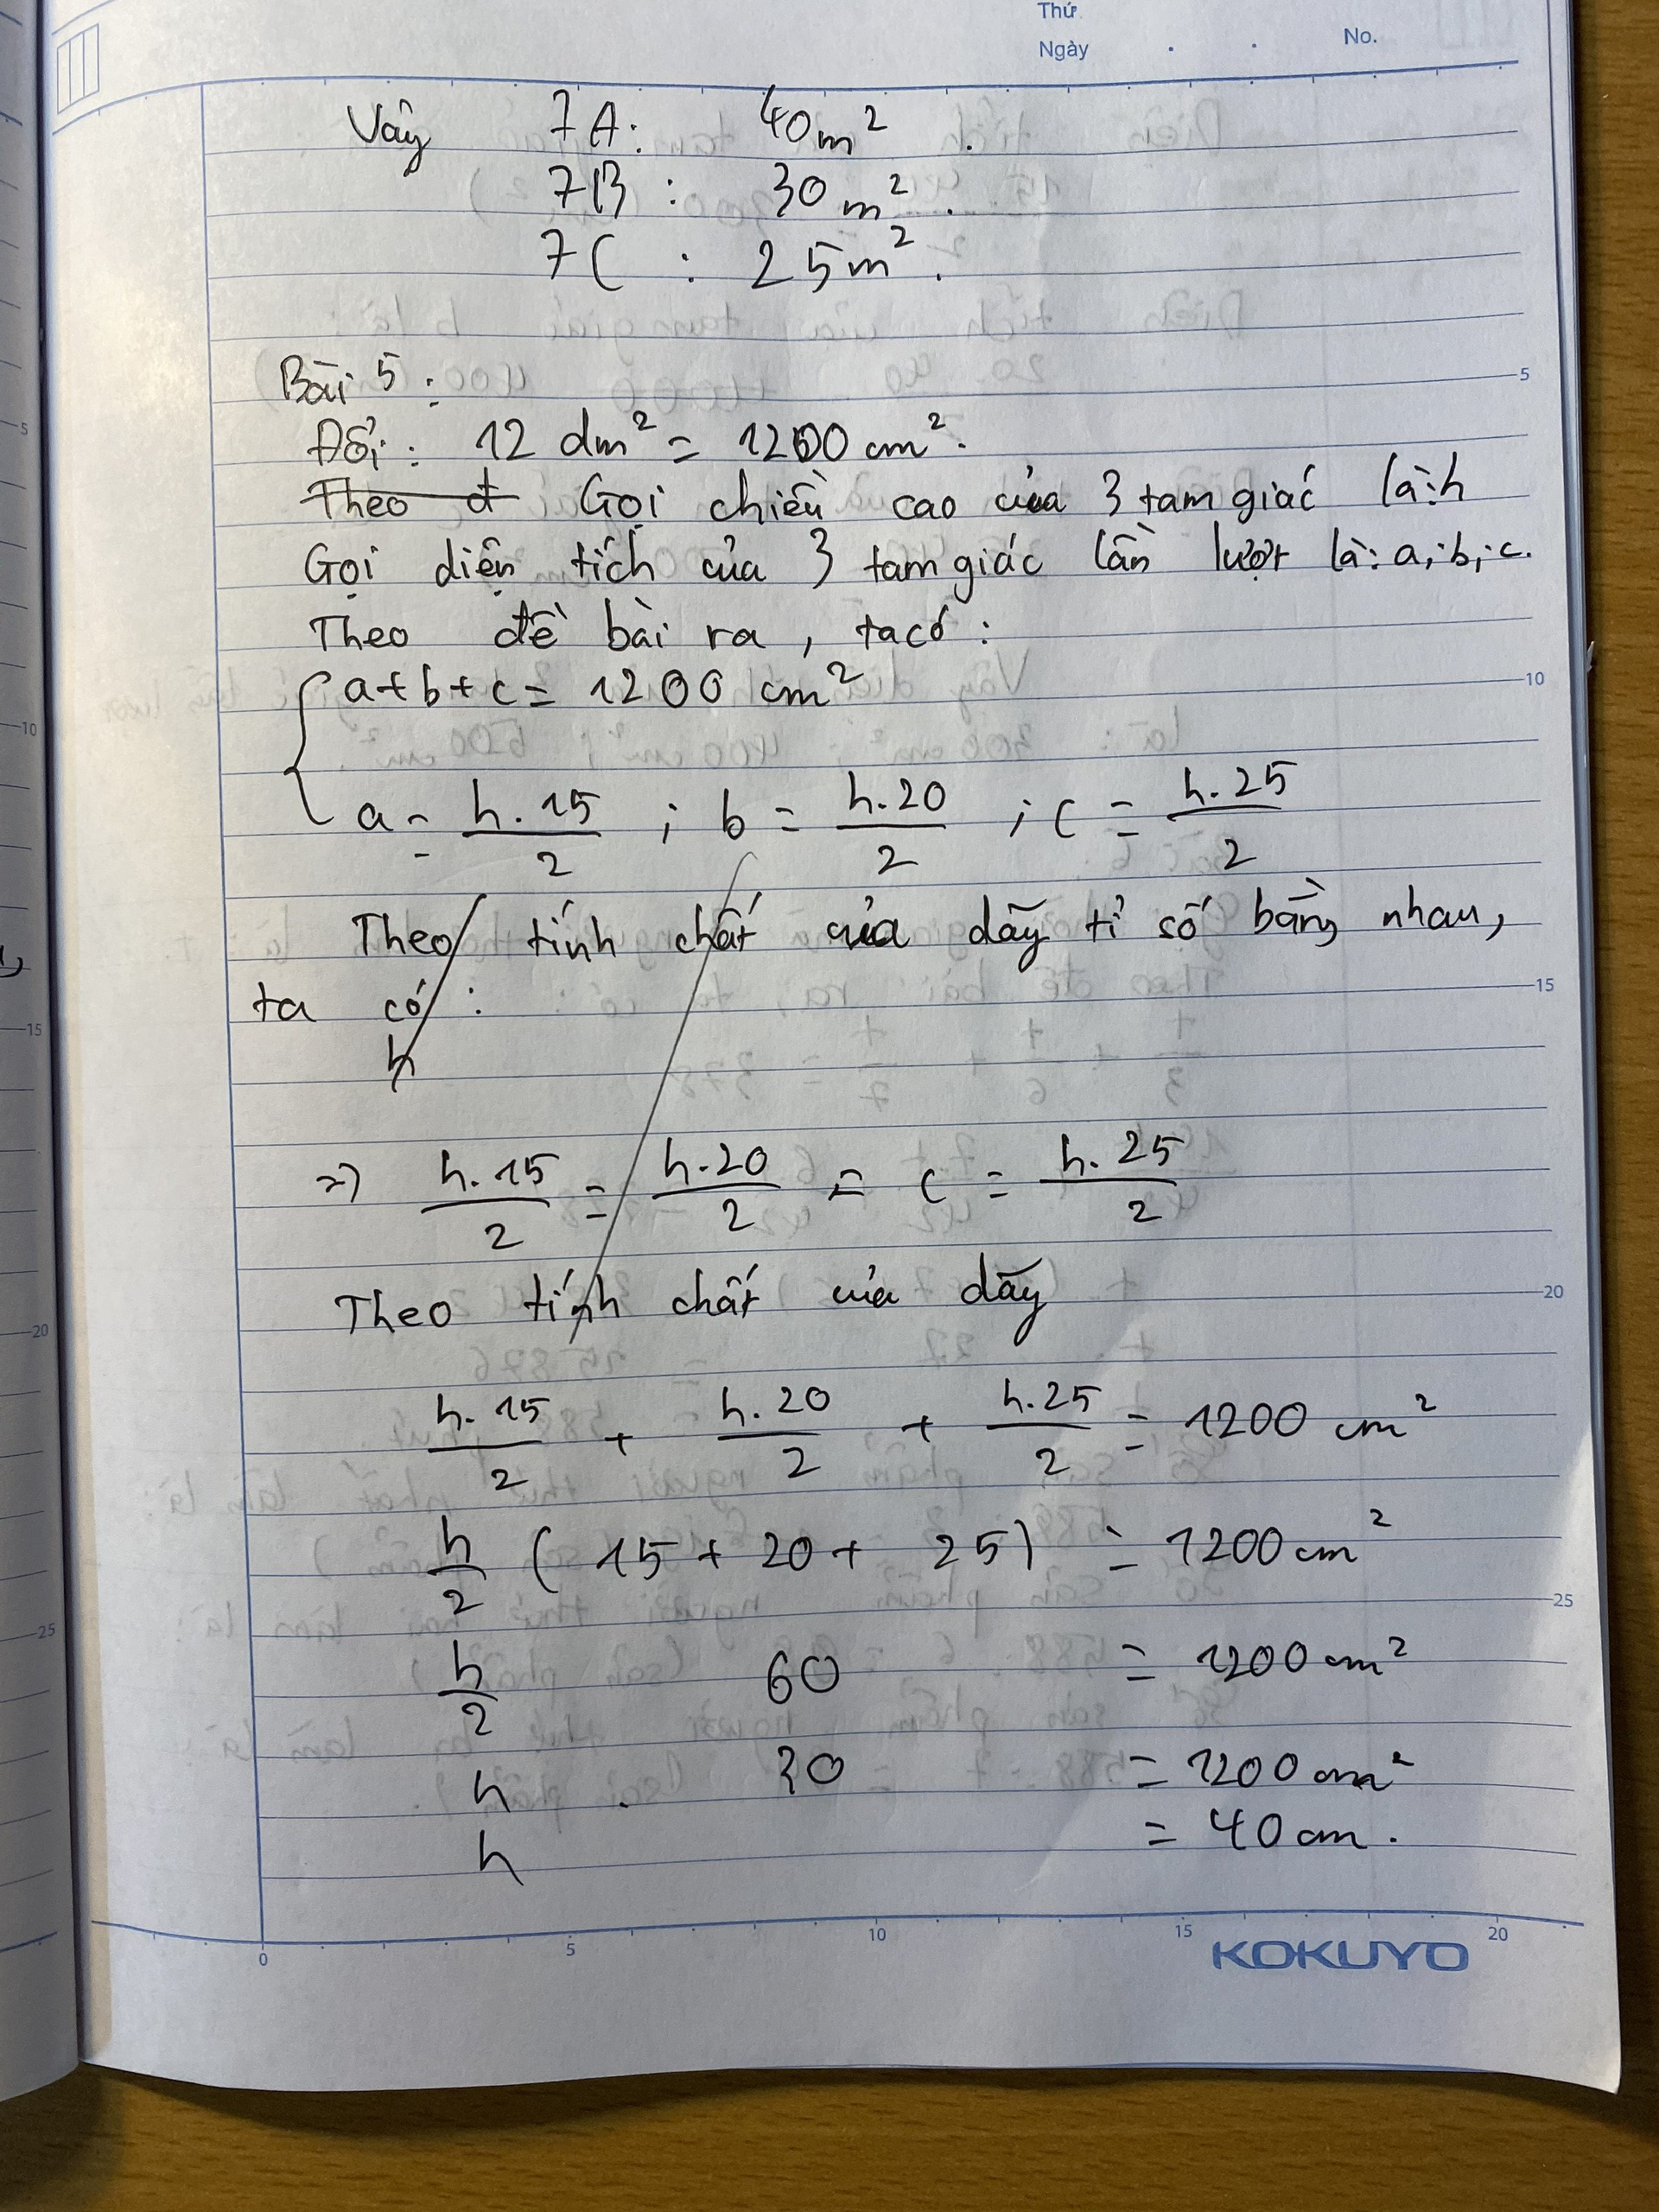 Thứ
Ngày . . No.
Vây 7A: 40m² .
7B : 30 m² .
7C : 25m² .
Bài 5 :
Đổi : 12 dm² = 1200 cm² .
Theo đ Gọi chiều cao của 3 tam giác là: h
Gọi diện tích của 3 tam giác lần lượt là: a; b; c.
Theo đề bài ra, ta có :
a + b + c = 1200 cm²
a = h.15/2 ; b = h.20/2 ; c = h.25/2
Theo tính chất của dãy tỉ số bằng nhau,
ta có :
h
=> h.15/2 = h.20/2 = c = h.25/2
Theo tính chất của dãy
h.15/2 + h.20/2 + h.25/2 = 1200 cm²
h/2 ( 15 + 20 + 25 ) = 1200 cm²
h/2 60 = 1200 cm²
h . 30 = 1200 cm²
h = 40 cm .
5
10
15
20
25
5
10
15
20
25
0 5 10 15 20
KOKUYO